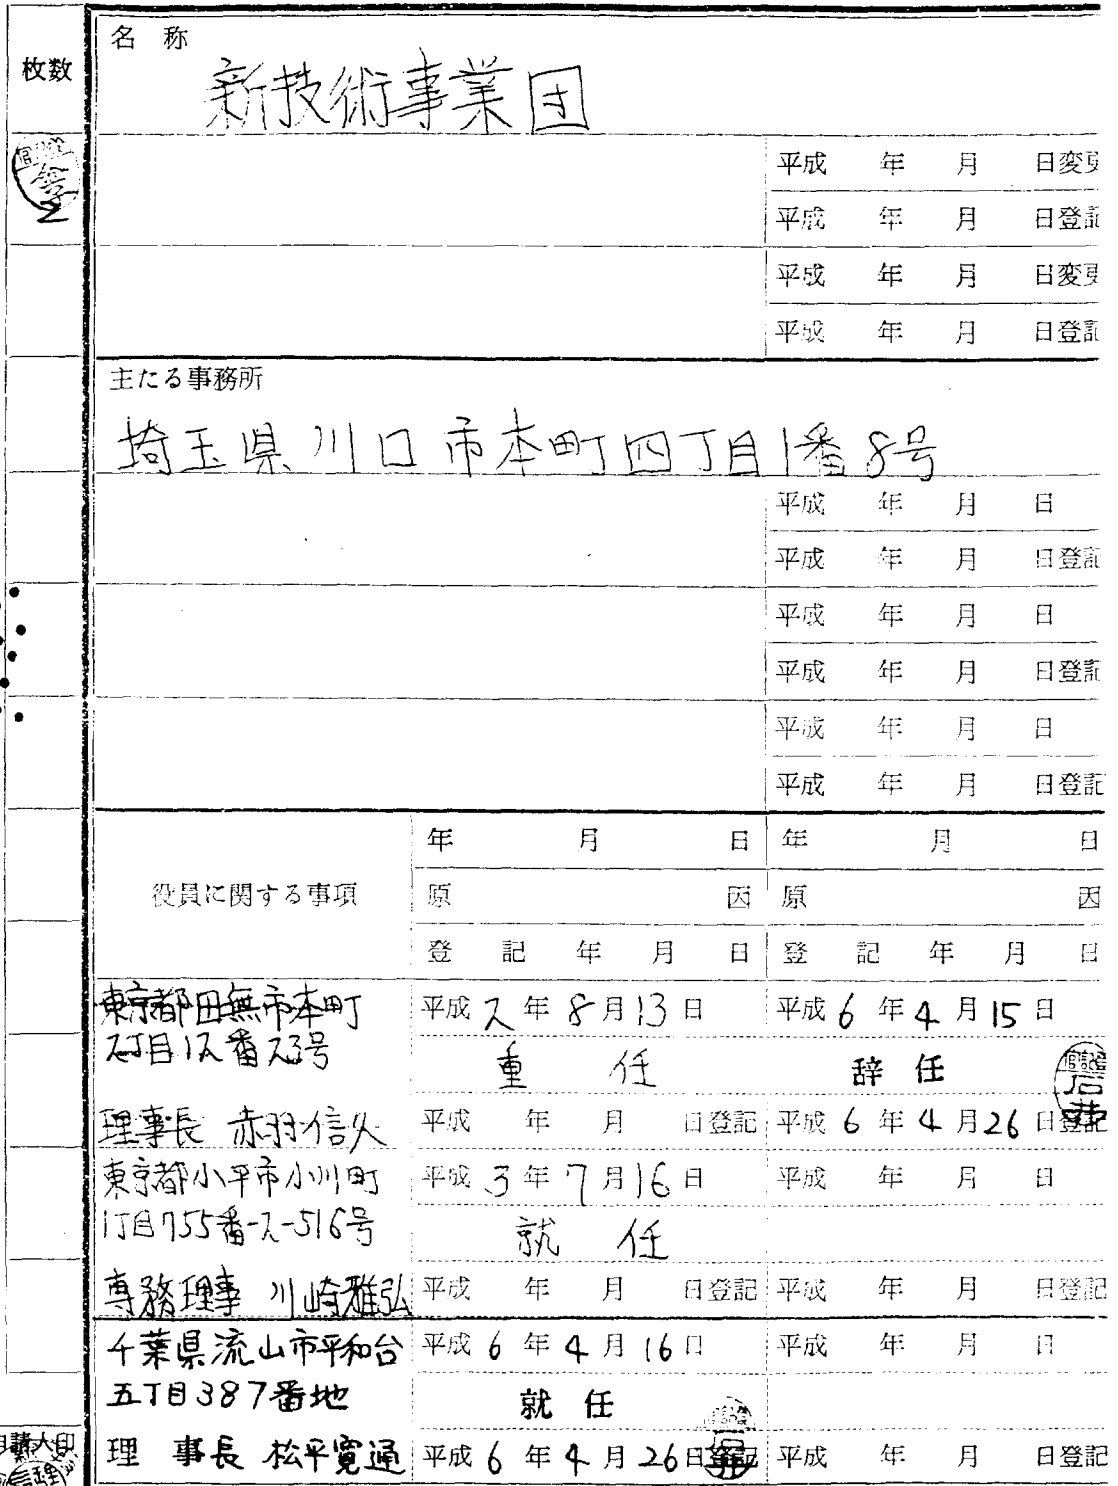 枚数
名 称
新技術事業団
平成 年 月 日変更
平成 年 月 日登記
平成 年 月 日変更
平成 年 月 日登記
主たる事務所
埼玉県川口市本町四丁目1番8号
平成 年 月 日
平成 年 月 日登記
平成 年 月 日
平成 年 月 日登記
平成 年 月 日
平成 年 月 日登記
役員に関する事項
年 月 日 年 月 日
原 因 原 因
登 記 年 月 日 登 記 年 月 日
東京都田無市本町 平成2年8月13日 平成6年4月15日
2丁目12番23号 重 任 辞 任
理事長 赤羽信久 平成 年 月 日登記 平成6年4月26日登記
東京都小平市小川町 平成3年7月16日 平成 年 月 日
1丁目755番-2-516号 就 任
専務理事 川崎雅弘 平成 年 月 日登記 平成 年 月 日登記
千葉県流山市平和台 平成6年4月16日 平成 年 月 日
五丁目387番地 就 任
理 事長 松平寛通 平成6年4月26日登記 平成 年 月 日登記